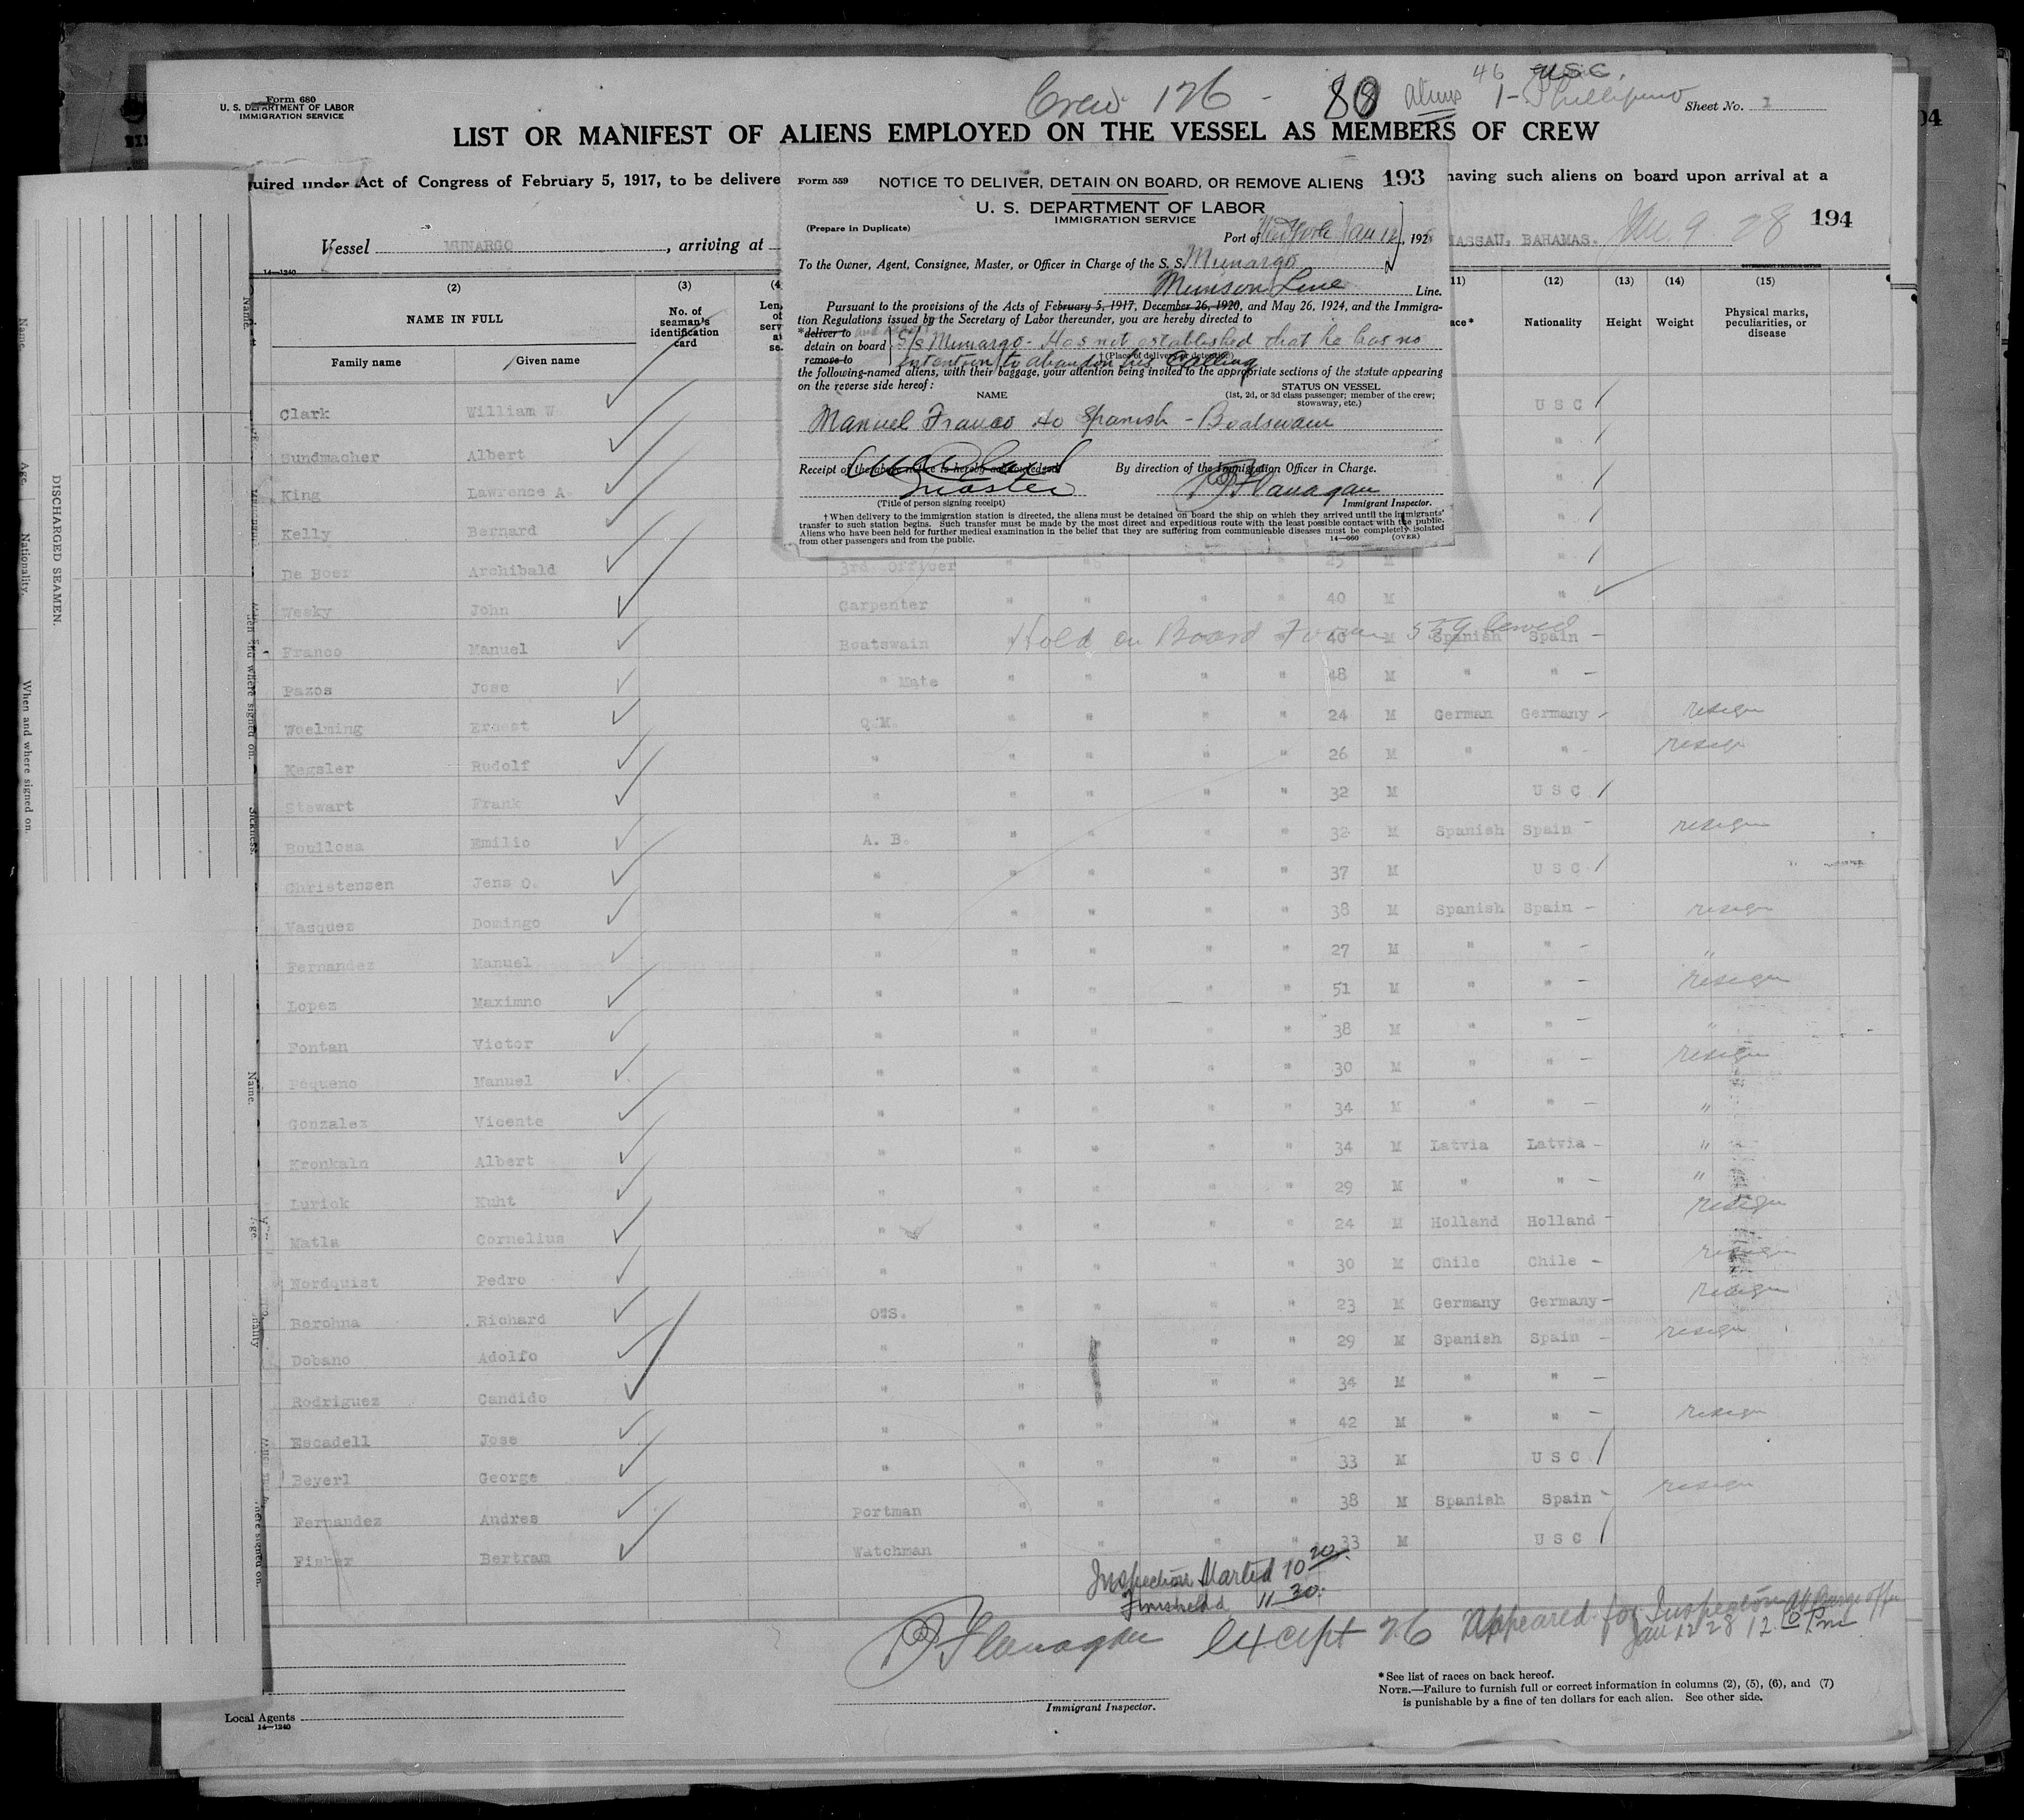 Form 680
U. S. DEPARTMENT OF LABOR
IMMIGRATION SERVICE
Crew 126 - 80 aliens
46 USC.
1-Phillipino
Sheet No. 1
LIST OR MANIFEST OF ALIENS EMPLOYED ON THE VESSEL AS MEMBERS OF CREW
uired under Act of Congress of February 5, 1917, to be delivere
having such aliens on board upon arrival at a
Vessel MUNARGO, arriving at
NASSAU, BAHAMAS. Jan. 9 28 194
14—1240
Form 559 NOTICE TO DELIVER, DETAIN ON BOARD, OR REMOVE ALIENS 193
U. S. DEPARTMENT OF LABOR
IMMIGRATION SERVICE
(Prepare in Duplicate)
Port of New York Jan 12, 192
To the Owner, Agent, Consignee, Master, or Officer in Charge of the S. S. Munargo
Munson Line Line.
Pursuant to the provisions of the Acts of February 5, 1917, December 26, 1920, and May 26, 1924, and the Immigra-
tion Regulations issued by the Secretary of Labor thereunder, you are hereby directed to
*deliver to
detain on board S/S Munargo - Has not established that he has no
remove to intention to abandon his calling
† (Place of delivery or detention)
the following-named aliens, with their baggage, your attention being invited to the appropriate sections of the statute appearing
on the reverse side hereof:
NAME
STATUS ON VESSEL
(1st, 2d, or 3d class passenger; member of the crew;
stowaway, etc.)
Manuel Franco 40 Spanish - Boatswain
Receipt of the above notice is hereby acknowledged
By direction of the Immigration Officer in Charge.
Master
Flanagan
(Title of person signing receipt)
Immigrant Inspector.
† When delivery to the immigration station is directed, the aliens must be detained on board the ship on which they arrived until the immigrants'
transfer to such station begins. Such transfer must be made by the most direct and expeditious route with the least possible contact with the public.
Aliens who have been held for further medical examination in the belief that they are suffering from communicable diseases must be completely isolated
from other passengers and from the public.
14—660 (OVER)
(2) (3) (4 11) (12) (13) (14) (15)
NAME IN FULL
Family name Given name
No. of seaman's identification card
ace* Nationality Height Weight Physical marks, peculiarities, or disease
Clark William W U S C
Sundmacher Albert "
King Lawrence A. "
Kelly Bernard "
De Boer Archibald 3rd Officer " " " " 25 M "
Wesky John Carpenter " " " " 40 M "
Franco Manuel Boatswain Hold on Board Form 559 Served 40 M Spanish Spain -
Pazos Jose " Mate " " " " 48 M " " -
Woelming Ernest Q.M. " " " " 24 M German Germany -
Kegsler Rudolf " " " " " 26 M " " -
Stewart Frank " " " " " 32 M U S C
Boullosa Emilio A. B. " " " " 32 M Spanish Spain -
Christensen Jens O. " " " " " 37 M U S C
Vasquez Domingo " " " " " 38 M Spanish Spain -
Fernandez Manuel " " " " " 27 M " " - "
Lopez Maximno " " " " " 51 M " " -
Fontan Victor " " " " " 38 M " " - "
Pequeno Manuel " " " " " 30 M " " -
Gonzalez Vicente " " " " " 34 M " " - "
Kronkaln Albert " " " " " 34 M Latvia Latvia - "
Lurick Kuht " " " " " 29 M " " - "
Matla Cornelius " " " " " 24 M Holland Holland -
Nordquist Pedro " " " " " 30 M Chile Chile -
Borohna Richard O.S. " " " " 23 M Germany Germany -
Dobano Adolfo " " " " 29 M Spanish Spain -
Rodriguez Candido " " " " 34 M " " -
Escadell Jose " " " " " 42 M " " -
Beyerl George " " " " " 33 M U S C
Fernandez Andres Portman " " " " 38 M Spanish Spain -
Fisher Bertram Watchman " " " " 33 M U S C
Inspection Started 10 20.
Finished 11 30.
Flanagan Except 26 Appeared for Inspection at Barge Office
Jan 12 28 12 Pm
Immigrant Inspector.
*See list of races on back hereof.
NOTE.—Failure to furnish full or correct information in columns (2), (5), (6), and (7)
is punishable by a fine of ten dollars for each alien. See other side.
Local Agents
14—1240
DISCHARGED SEAMEN.
Name. Age. Nationality. When and where signed on.